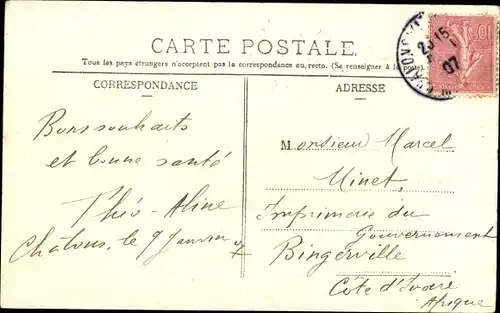 CARTE POSTALE
Tous les pays étrangers n'acceptent pas la correspondance au recto. (Se renseigner à la poste).
CORRESPONDANCE
ADRESSE
Bons souhaits
et bonne santé
Théo-Aline
Châlons, le 9 Janvier 07
Monsieur Marcel
Minet,
Imprimerie du
Gouvernement
Bingerville
Côte d'Ivoire
Afrique
10
15
07